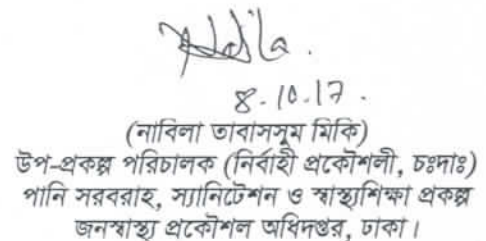 8.10.17.
(নাবিলা তাবাসসুম মিকি)
উপ-প্রকল্প পরিচালক (নির্বাহী প্রকৌশলী, চঃদাঃ)
পানি সরবরাহ, স্যানিটেশন ও স্বাস্থ্যশিক্ষা প্রকল্প
জনস্বাস্থ্য প্রকৌশল অধিদপ্তর, ঢাকা।